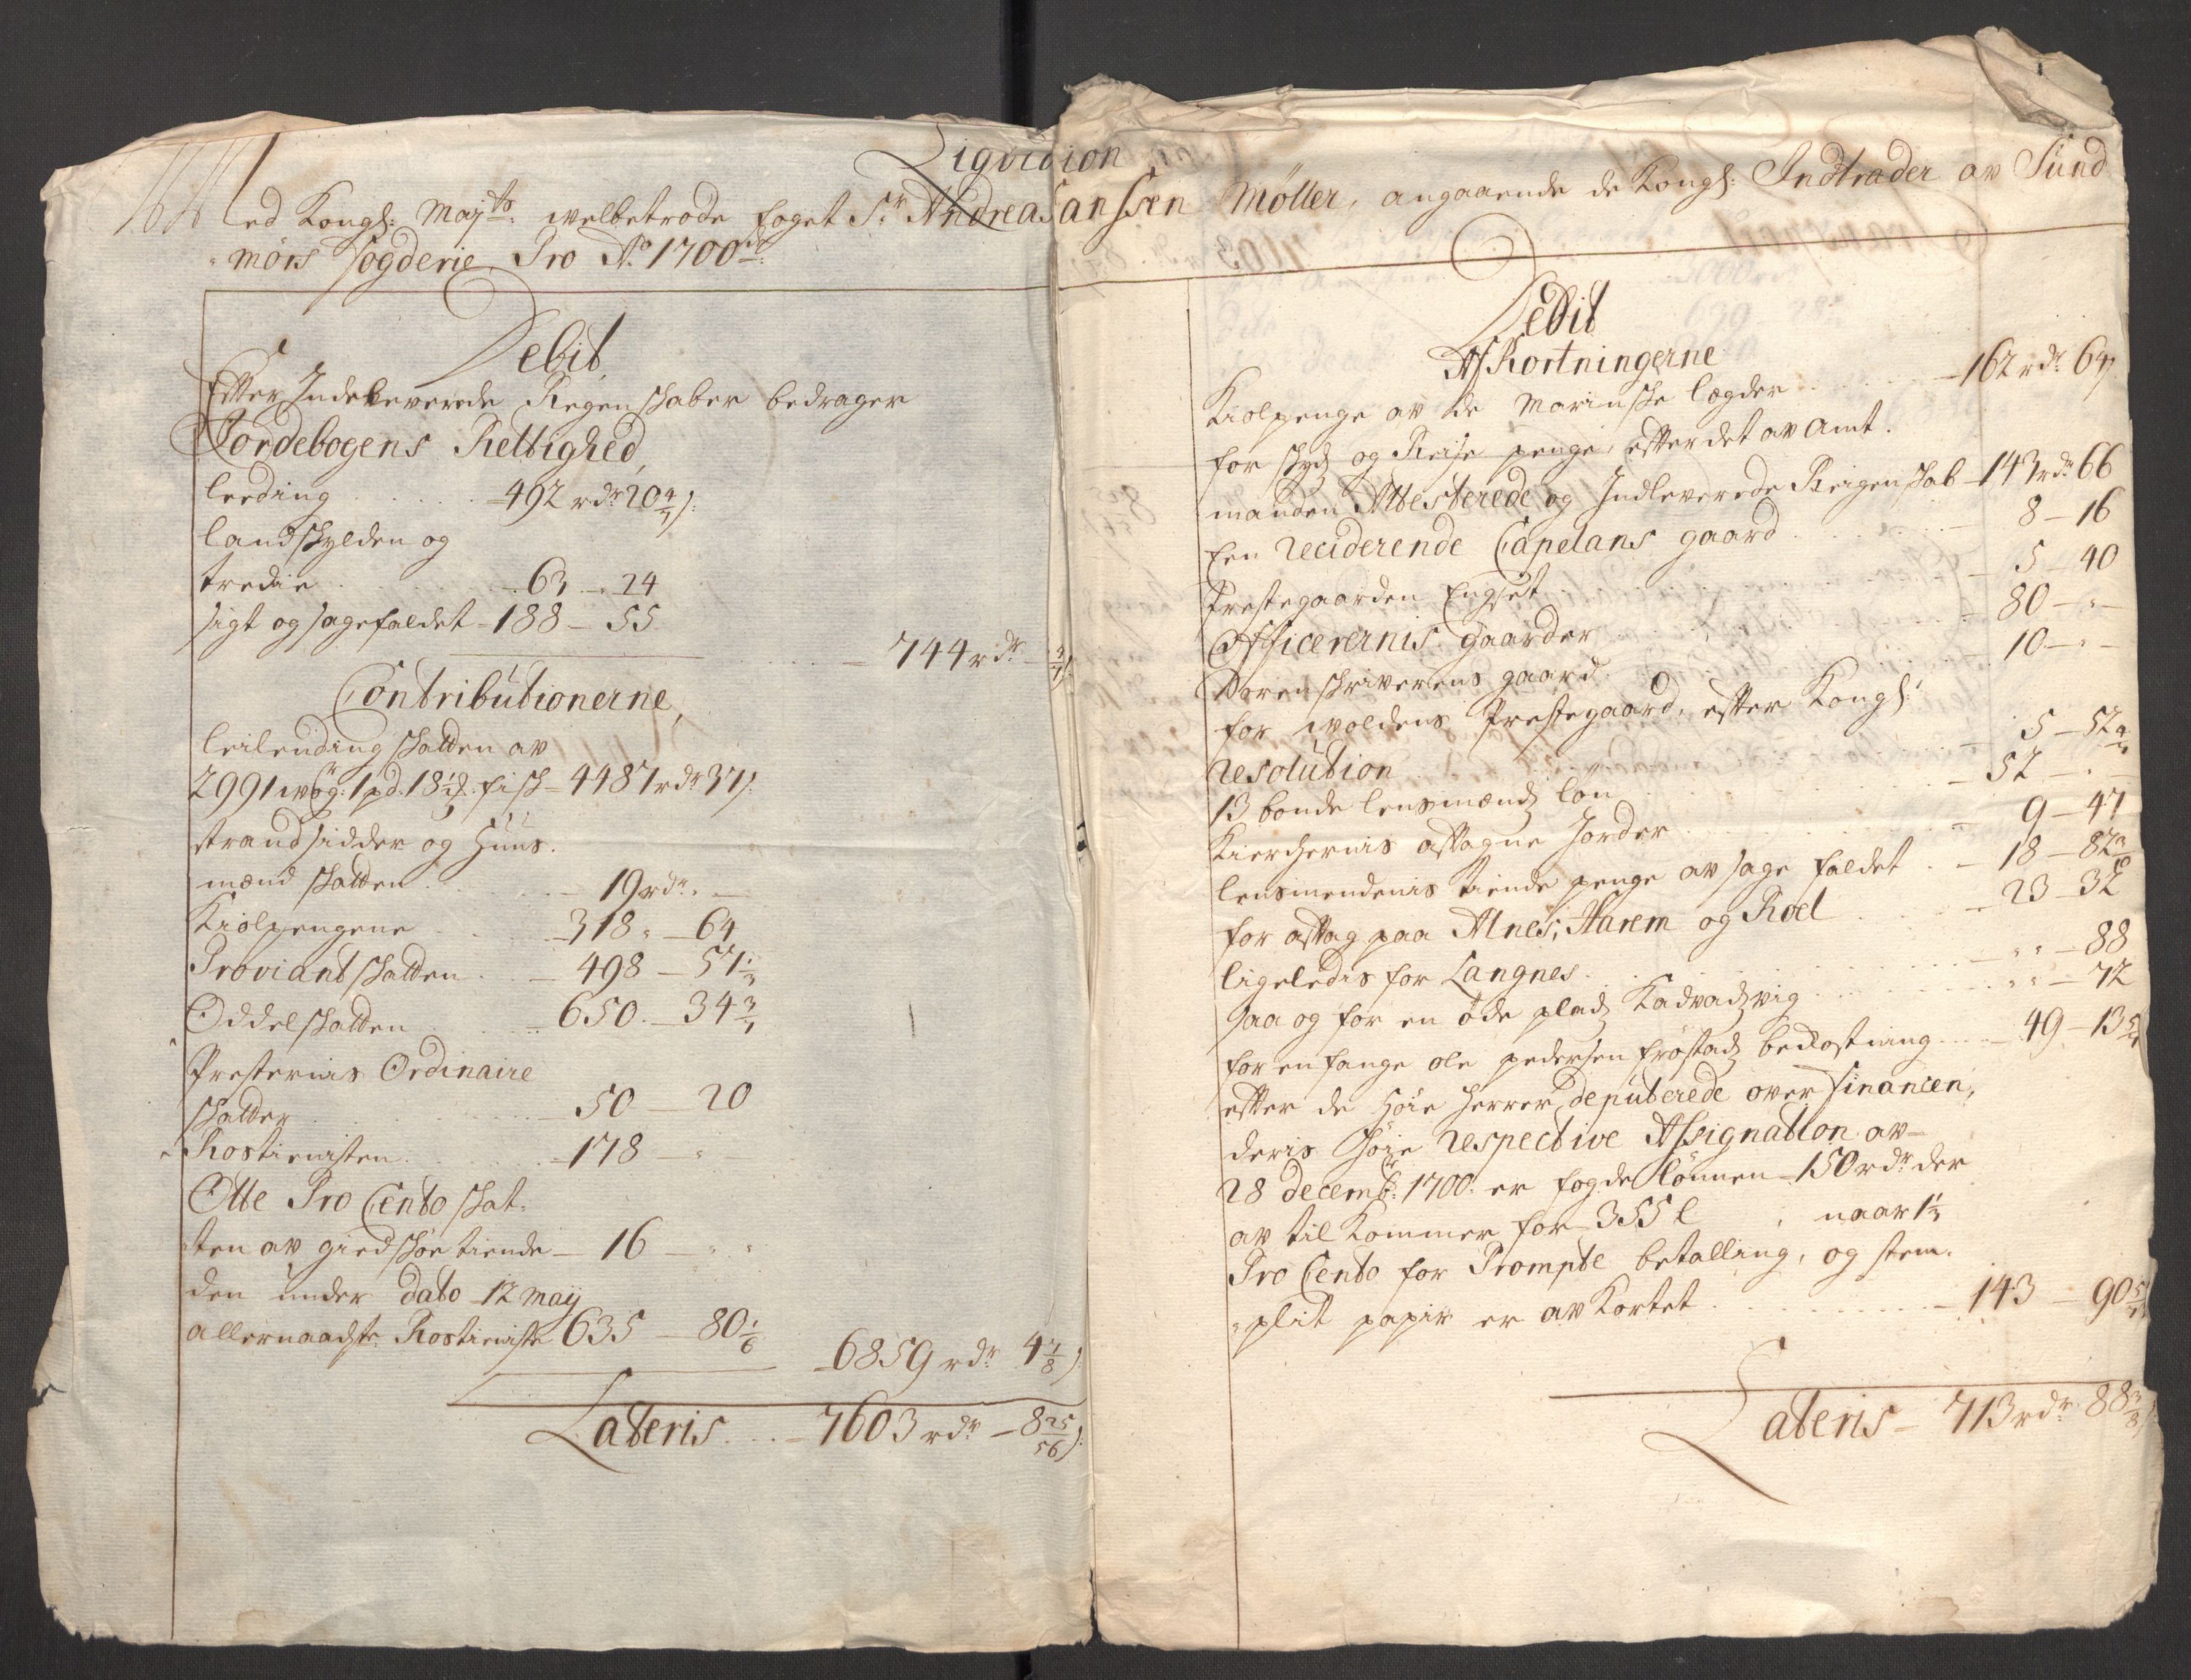 Liqvidion
Med Kongl: Mayts: welbetrode foget Sr Andreas anssen Møller, angaaende de Kongl: Indtrader av Sund
mørs fogderie, Pro Ao. 1700de
Debit
Efter Indeleverede Regenskaber bedrager
Jordebogens Rettighed,
leeding 492 rdr 20 4/7 s:
landskylden og
tredie 63 - 24
sigt og sagefaldet - 188 - 55
744 rdr - 3 4/7 s:
Contributionerne,
leilending skatten av
2991 wog: 1 pd. 18 fisk - 4487 rdr 37 s:
strandsidder og Huus-
mænd skatten 19 rdr -
Kiolpengene 318 - 64
Proviantskatten 498 - 57 1/3
Oddelskatten 650 - 34 3/7
Presternis Ordinaire
skatter 50 - 20
Rostienisten 178 -
Otte Pro Cento skat-
ten av giedskøe tiende - 16 -
den under dato 12 Maij
allernaadste Rostieniste 635 - 80 1/6
6859 rdr 4 7/8 s:
Lateris 7603 rdr - 8 25/56 s:
Debit
AfKortningerne
Kiolpenge av de Marinske lægder 162 rdr 64
for skydz og Reise penge, efter det av Amt-
manden Attesterede og Indleverede Reigenskab - 143 rdr 66
Een Reciderende Capelans gaard 8 - 16
Prestegaarden Engset 5 - 40
Officerernis gaarder 80 -
Sorenskriverens gaard 10 -
for woldens Prestegaard, efter Kongl:
Resolution 5 - 52
13 bonde lensmændz løn 52 -
Kierchernis aftagne Jorder 9 - 47
lensmendenis tiende penge av sage faldet - 18 - 82
for aftag paa Alnes, Harem og Roel 23 - 32
ligeledis for Langnes - 88
saa og for en øde pladz Kadvadzvig - 72
for en fange ole pedersen frøstadz bekostning 49 - 13
efter de Høie Herrer deputerede over financen,
deris Høie Respective Assignation av
28 decembr: 1700. er fogde Lønnen - 150 rdr der
av til Kommer for 355 naar 1
Pro Cento for Prompte betalling, og stem-
plit papir er av Kortet 143 - 90
Lateris - 713 rdr 88 3/8